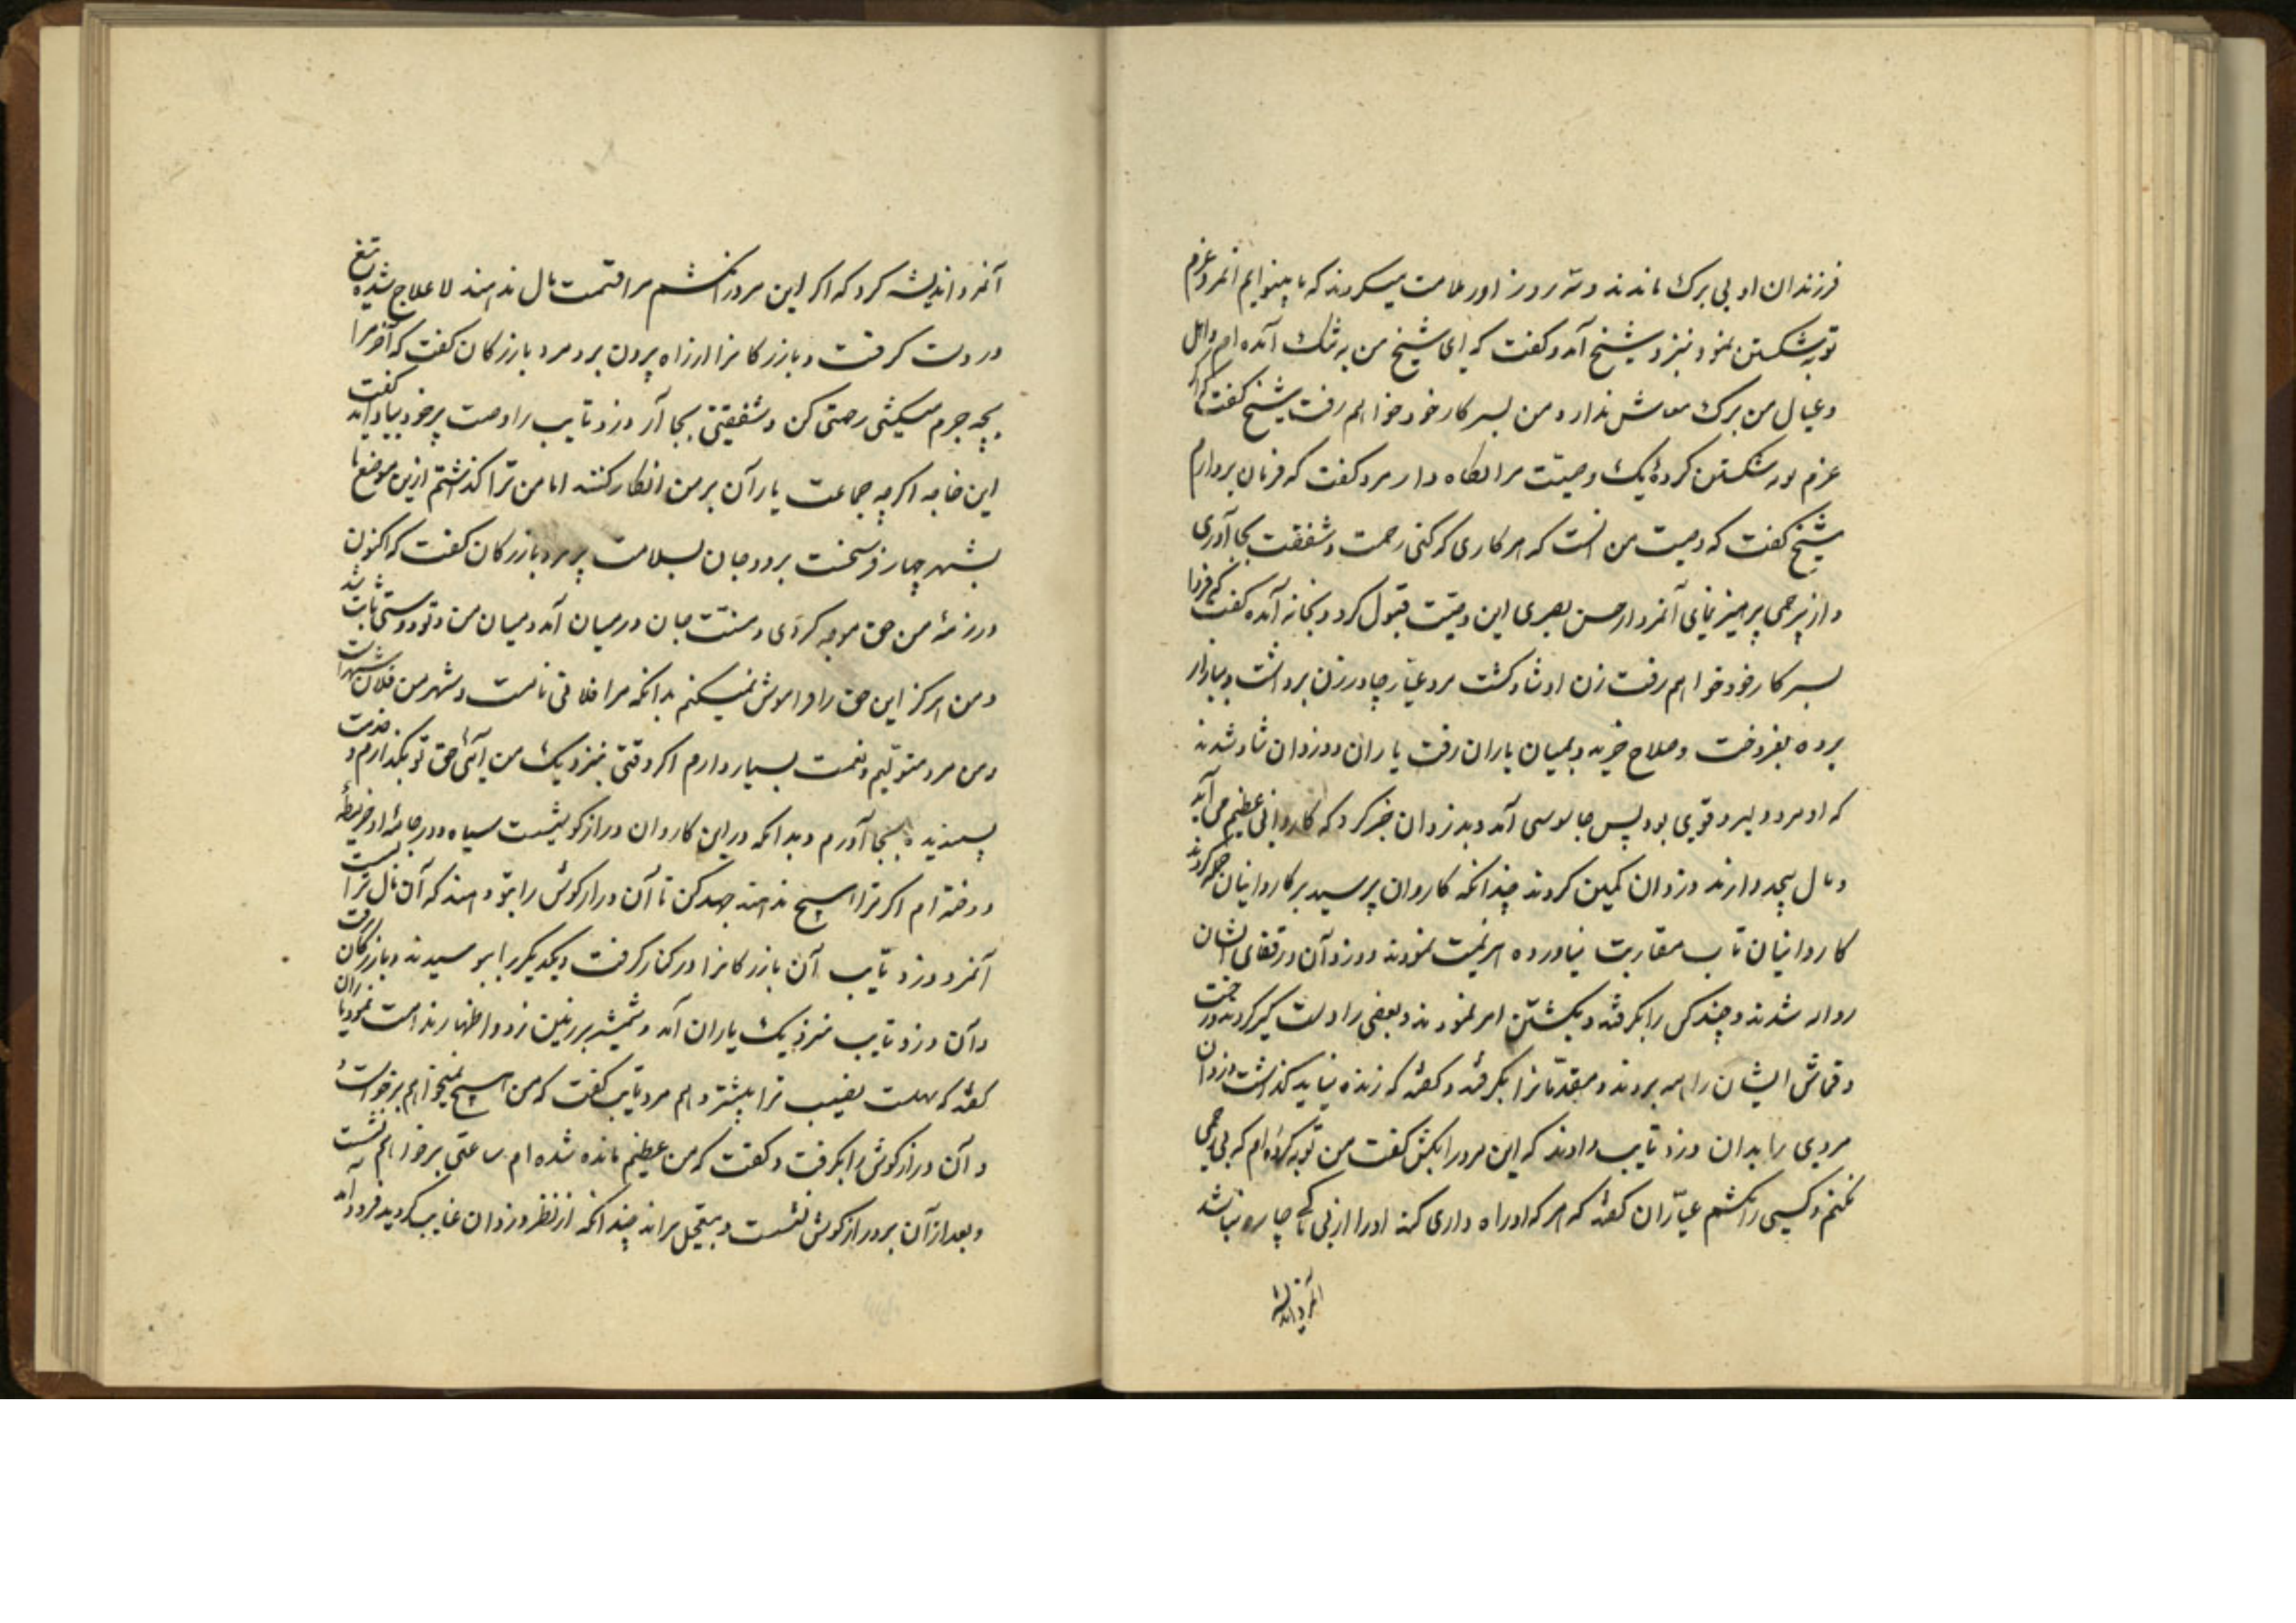 فرزندان او بی برک ماندند و سه روز اورا ملامت میکردند که ما بینوایم آنمرد عزم
توبه شکستن نمود نیزد شیخ آمد و کفت که ای شیخ من به تنک آمده ام و اهل
و عیال من برک معاش ندارد و من بسر کار خود خواهم رفت شیخ کفت اکر
عزم توبه شکستن کردهٔ یک وصیّت مرا نکاه دار مرد کفت که فرمان بردارم
شیخ کفت که وصیت من آنست که هر کاری که کنی رحمت و شفقت بجا آوری
و از بیرحمی پرهیز نمای آنمرد از حسن بصری این وصیّت قبول کرد و بخانه آمده کفت که فردا
بسر کار خود خواهم رفت زن او شاد کشت مرد عیّار چادر زن برداشت و ببازار
برده بفروخت و سلاح خرید و بمیان یاران رفت یاران و دزدان شاد شدند
که او مرد دلیر و قوی بود پس جاسوسی آمد و بدزدان خبر کرد که کاروانی عظیم می آید
و مال بیحد دارند دزدان کمین کردند چندانکه کاروان برسید بر کاروانیان حمله کردند
کاروانیان تاب مقاومت نیاورده هزیمت نمودند و دزدان در قفای ایشان
روانه شدند و چند کس را بکرفتند و بکشتن امر نمودند و بعضی را دست کیر کردند و رخت
و قماش ایشان را همه بردند و مقدّمانرا بکرفتند و کفتند که زنده نباید کذاشت دزدان
مردی را بدان دزد تایب دادند که این مرد را بکش کفت من توبه کرده ام که بی رحمی
نکنم و کسی را نکشم عیّاران کفتند که هر که او راه داری کند او را از بی باکی چاره نباشد
آنمرد اندیشه
آنمرد اندیشه کرد که اکر این مرد را نکشم مرا قسمت مال ندهند لا علاج شده تیغ
در دست کرفت و بازرکانرا از راه بیرون برد مرد بازرکان کفت که آخر مرا
بچه جرم میکشی رحمتی کن و شفقتی بجا آر دزد تایب را وصیت پیر خود بیاد آمد کفت
این خاجه اکرچه جماعت یاران بر من انکار کنند اما من ترا کذشتم ازین موضع تا
بشهر چهار فرسخست برو و جان بسلامت ببر مرد بازرکان کفت که اکنون
در ذمهٔ من حق موجه کردی و منّت جان در میان آمد و میان من و تو دوستی ثابت شد
و من هرکز این حق را فراموش نمیکنم بدانکه مرا فلانی نامست و شهر من فلان شهرست
و من مرد متولیم و نعمت بسیار دارم اکر وقتی نیزدیک من آئی حق تو بکذارم و خدمت
پسندیده بجا آورم و بدانکه در این کاروان دراز کوشیست سیاه و در جامهٔ او خریطهٔ
دوخته ام اکر ترا هیچ ندهند جهد کن تا آن دراز کوش را بتو دهند که آن مال ترا بست
آنمرد دزد تایب آن بازرکانرا در کنار کرفت و یکدیکر را ببوسیدند و بازرکان برفت
و آن دزد تایب نیزدیک یاران آمد و شمشیر بر زمین زد و اظهار ندامت نمود یاران
کفتند که مهلت نصیب ترا بیشتر دهیم مرد تایب کفت که من هیچ نمیخواهم برخواست
و آن دراز کوش را بکرفت و کفت که من عظیم مانده شده ام ساعتی بر خر خواهم نشست
و بعد از آن بر دراز کوش نشست و بتعجیل براند چندانکه از نظر دزدان غایب کردید فرود آمد